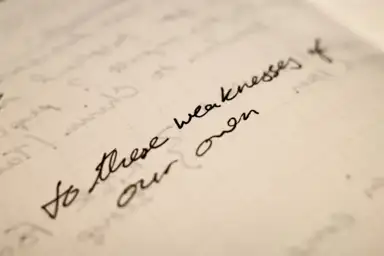 to these weaknesses of
our own